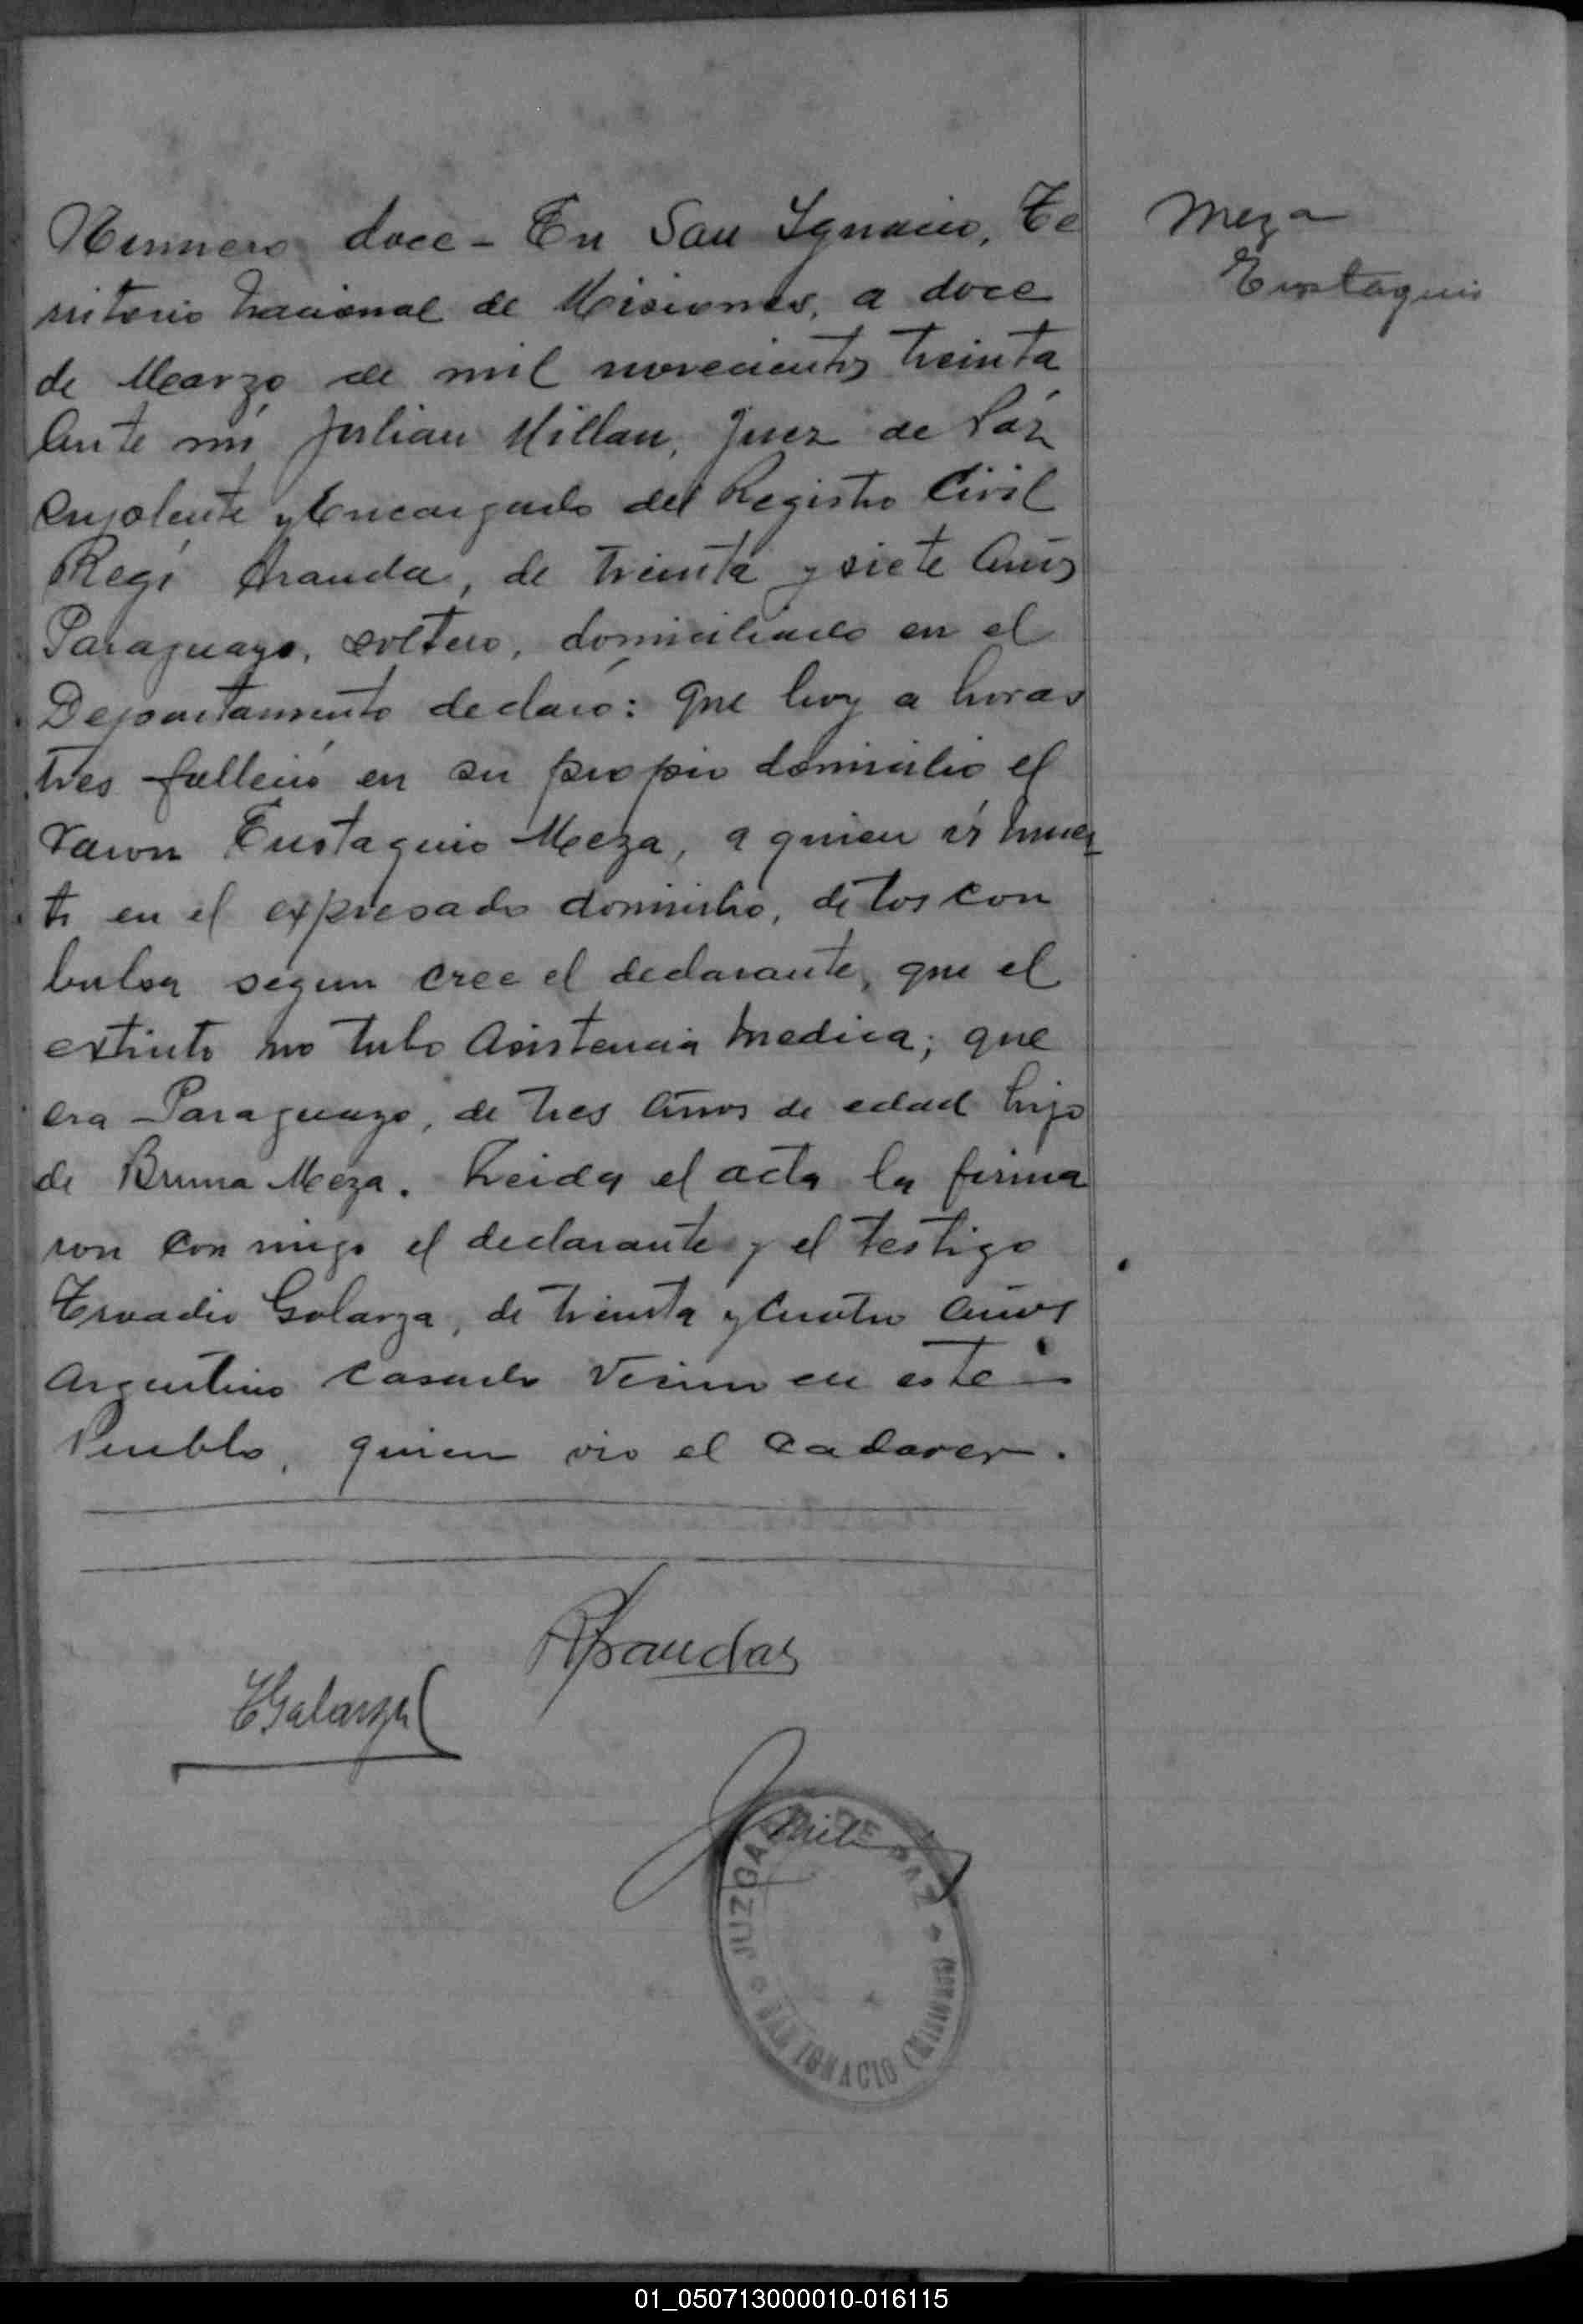 Numero doce - En San Ignacio, Te
rritorio Nacional de Misiones, a doce
de Marzo de mil novecientos treinta
Ante mi Julian Millan, Juez de Páz
Suplente y Encargado del Registro Civil
Regi Aranda, de treinta y siete años
Paraguayo, soltero, domiciliado en el
Departamento declaró: Que hoy a horas
tres falleció en su propio domicilio el
varon Eustaquio Meza, a quien vi muer
to en el expresado domicilio, de tos con
bulsa segun cree el declarante, que el
extinto no tubo asistencia medica; que
era Paraguayo, de tres años de edad hijo
de Bruna Meza. Leida el acta la firma
ron con migo el declarante y el testigo
Galarza, de treinta y cuatro años
Argentino casado vecino en este
Pueblo, quien vio el cadaver.
Meza
Eustaquio
RArandas
EGalarza
JMill
JUZGADO DE PAZ
SAN IGNACIO (MISIONES)
01_050713000010-016115